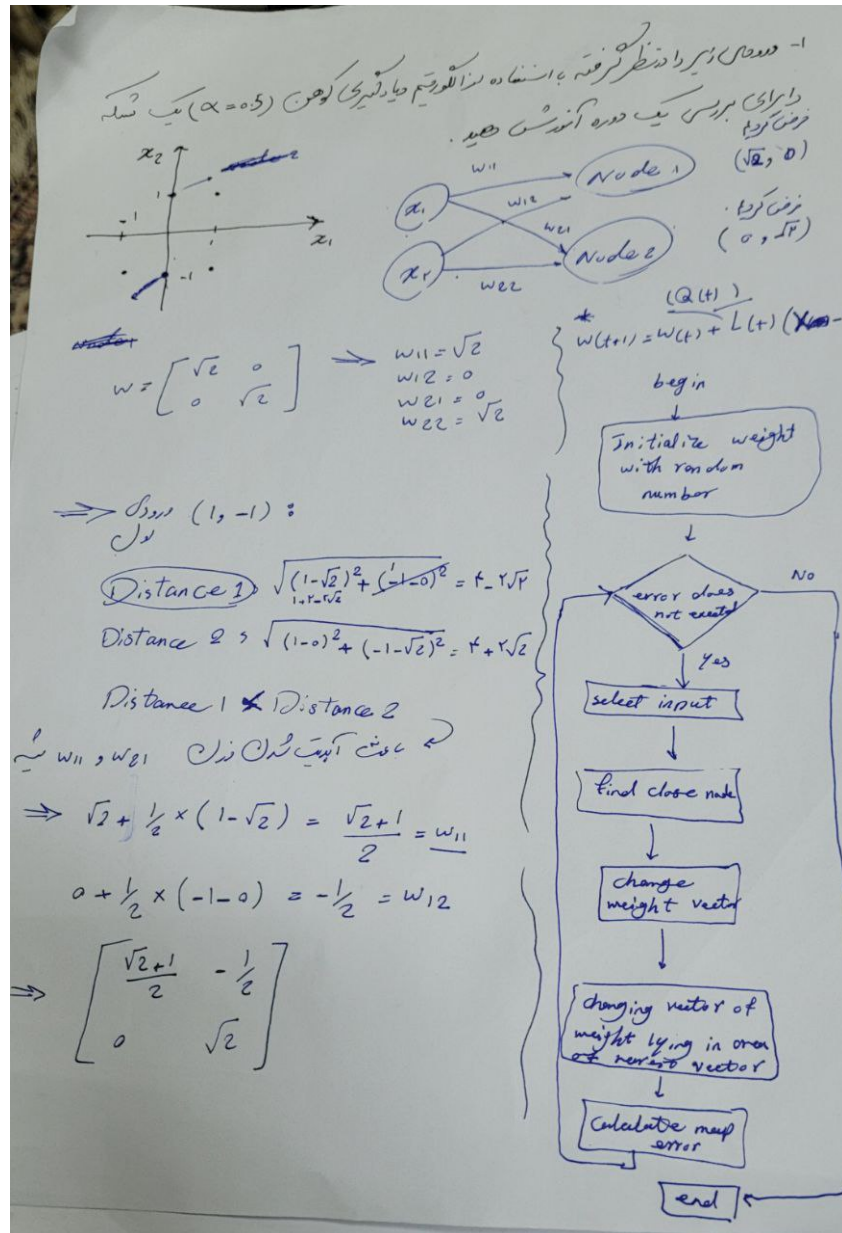 1- ورودی زیر را درنظر گرفته با استفاده از الگوریتم یادگیری کوهنن (α = 0.5) یک شبکه
را برای بررسی یک دوره آموزش دهید.
x2
1
-1
1
x1
-1
x1
x2
w11
w12
w21
w22
Node 1
Node 2
فرض کردیم
(√2, 0)
فرض کردیم
(0, √2)
w = [ √2 0
0 √2 ]
⇒ w11 = √2
w12 = 0
w21 = 0
w22 = √2
⇒ ورودی (1, -1) :
اول
Distance 1: √((1-√2)² + (-1-0)²) = ۴-۲√۲
1+۲-۲√2 1
Distance 2 : √((1-0)² + (-1-√2)²) = ۴+۲√2
Distance 1 < Distance 2
باعث آپدیت شدن وزن w11 , w21
⇒ √2 + 1/2 × (1-√2) = (√2+1)/2 = w11
0 + 1/2 × (-1-0) = -1/2 = w12
⇒ [ (√2+1)/2 -1/2
0 √2 ]
(Q(t))
* w(t+1) = w(t) + L(t) (
begin
Initialize weight
with random
number
error does
not
No
Yes
select input
find close node
change
weight vector
changing vector of
weight lying in area
of nearest vector
Calculate map
error
end